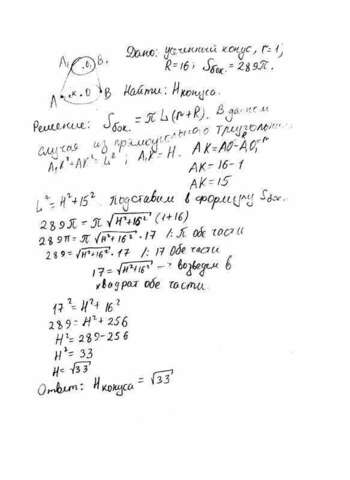 A₁ O₁ B₁
A K O B
Дано: усеченный конус, r=1;
R=16; Sбок. = 289π.
Найти: Hконуса.
Решение: Sбок. = πL(r+R). В данном
случае из прямоугольного треугольн.
A₁K²+AK² = L²; A₁K=H. AK=AO-A₁O₁
AK=16-1
AK=15
L² = H²+15². подставим в формулу Sбок.
289π = π√H²+16² (1+16)
289π = π√H²+16² · 17 |: π обе части
289 = √H²+16² · 17 |: 17 обе части
17 = √H²+16² → возведем в
квадрат обе части.
17² = H²+16²
289 = H²+256
H² = 289-256
H² = 33
H = √33
Ответ: Hконуса = √33